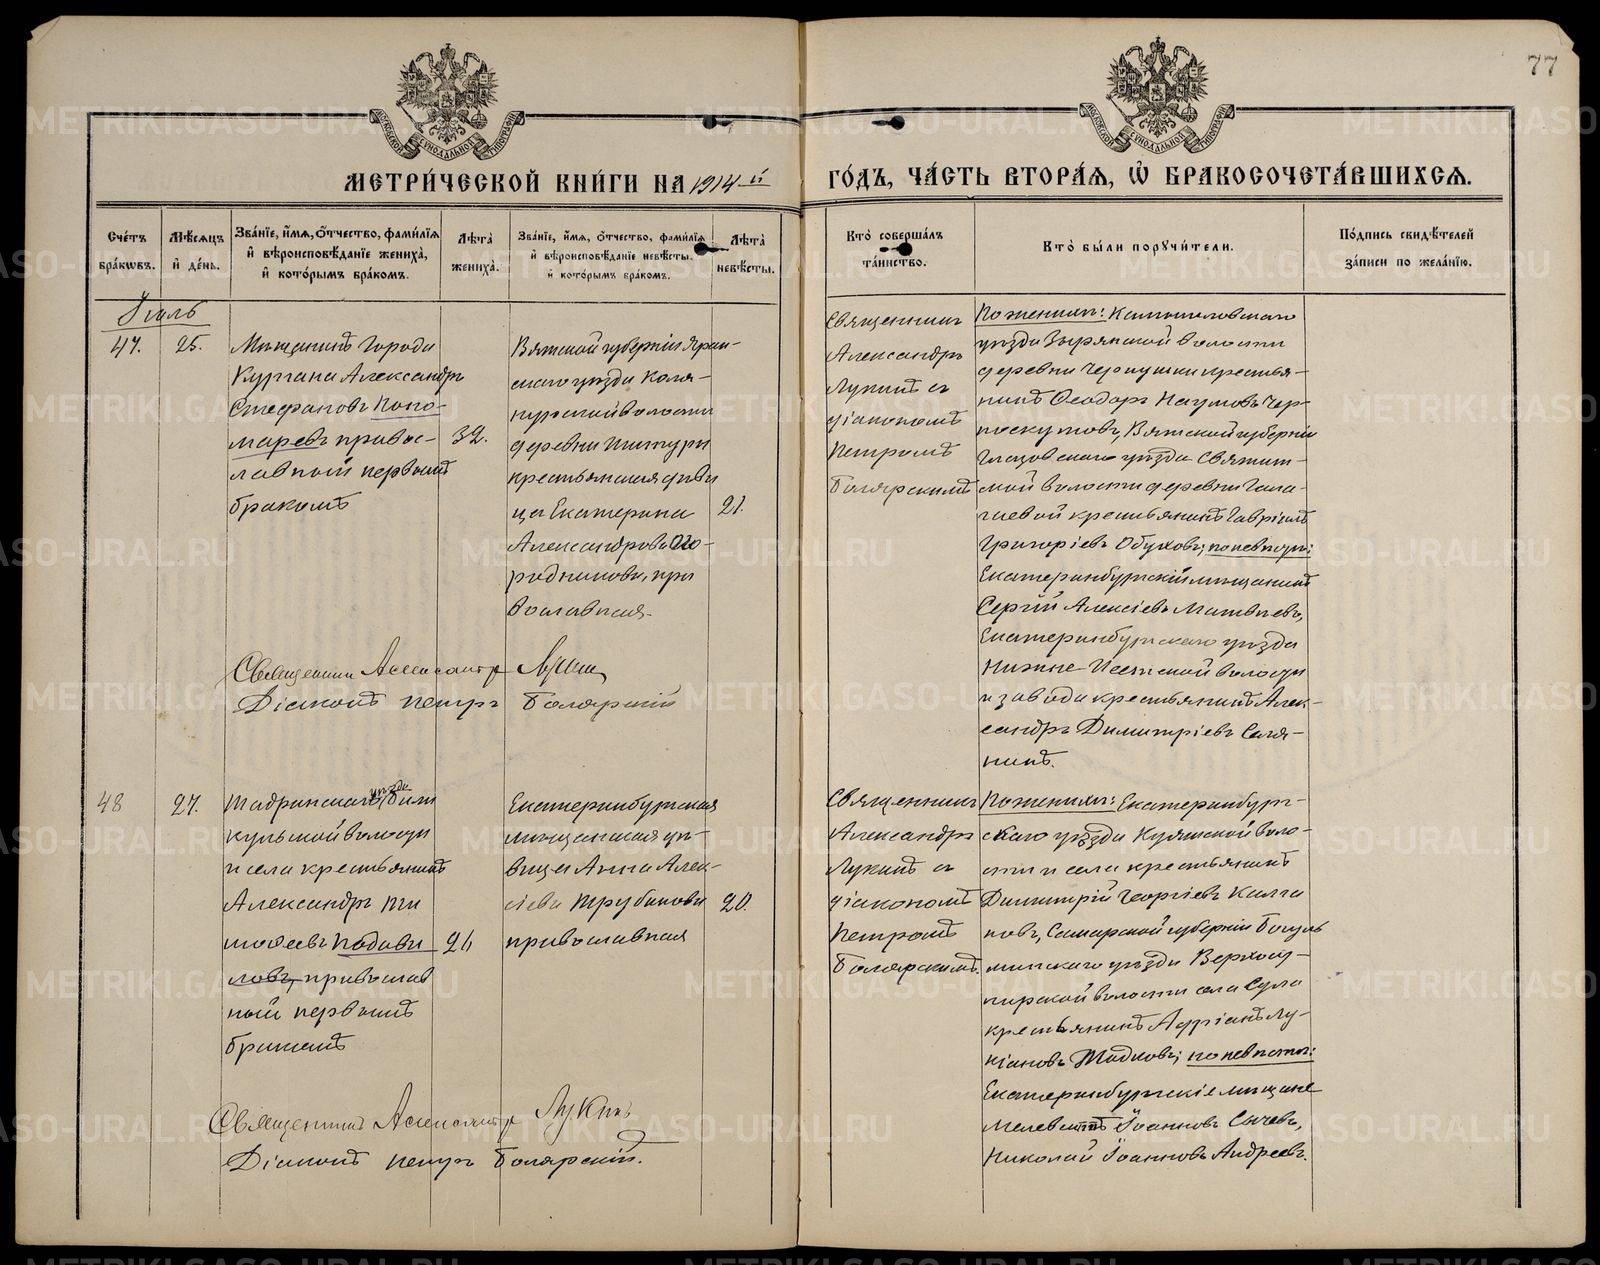 77
МЕТРИ́ЧЕСКОЙ КНИ́ГИ НА 1914-й ГО́ДЪ, ЧА́СТЬ ВТОРА́Я, Ѡ҆ БРАКОСОЧЕТА́ВШИХСЯ.
Сче́тъ бра́кѡвъ.
Мѣ́сяцъ и҆ де́нь.
Зва́нїе, и҆́мя, ѻ҆́тчество, фами́лїя
и҆ вѣроисповѣ́данїе жениха̀,
и҆ кото́рымъ бра́комъ.
Лѣ́та̀ жениха̀.
Зва́нїе, и҆́мя, ѻ҆́тчество, фами́лїя
и҆ вѣроисповѣ́данїе невѣ́сты.
и҆ кото́рымъ бра́комъ.
Лѣ́та̀ невѣ́сты.
Кто̀ соверша́лъ
та́инство.
Кто̀ бы́ли порꙋчи́тели.
По́дпись свидѣ́телей
за́писи по жела́нїю.
Іюль
47.
25.
Мѣщанинъ города
Кургана Александръ
Стефановъ Поно-
маревъ правос-
лавный первымъ
бракомъ
32.
Вятской губерніи Яран-
скаго уѣзда Коля-
нурской волости
деревни
крестьянская дѣви
ца Екатерина
Александрова Ого-
родникова, пра
вославная.
21.
Священникъ
Александръ
Лукинъ съ
діакономъ
Петромъ
Боярскимъ
По женихѣ: Камышловскаго
уѣзда Зырянской волости
деревни Черпушки крестья-
нинъ Ѳеодоръ Наумовъ Чер-
носкутовъ, Вятской губерніи
Глазовскаго уѣзда Святиц-
кой волости деревни
крестьянинъ Гавріилъ
Григоріевъ Обуховъ; по невѣстѣ:
Екатеринбургскій мѣщанинъ
Сергій Алексіевъ Матвѣевъ,
Екатеринбургскаго уѣзда
Нижне-Исетской волости
и завода крестьянинъ Алек-
сандръ Димитріевъ Саля-
нинъ.
Священникъ Александръ Лукинъ
Діаконъ Петръ Боярскій
48
27.
Шадринскаго уѣзда
кульской волости
и села крестьянинъ
Александръ Ти
моѳеевъ Подави
ловъ, православ
ный первымъ
бракомъ
24
Екатеринбургская
мѣщанская дѣ-
вица Анна Алек-
сіева Трубинова
православная
20.
Священникъ
Александръ
Лукинъ съ
діакономъ
Петромъ
Боярскимъ.
По женихѣ: Екатеринбург-
скаго уѣзда Куяшской воло-
сти и села крестьянинъ
Димитрій Георгіевъ Калга
новъ, Самарской губерніи Бугуль
минскаго уѣзда
волости села Сула
крестьянинъ Адріанъ Лу-
кіановъ Жадковъ; по невѣстѣ:
Екатеринбургскіе мѣщане
Іоанновъ Сычевъ,
Николай Іоанновъ Андреевъ.
Священникъ Александръ Лукинъ
Діаконъ Петръ Боярскій.
METRIKI.GASO-URAL.RU